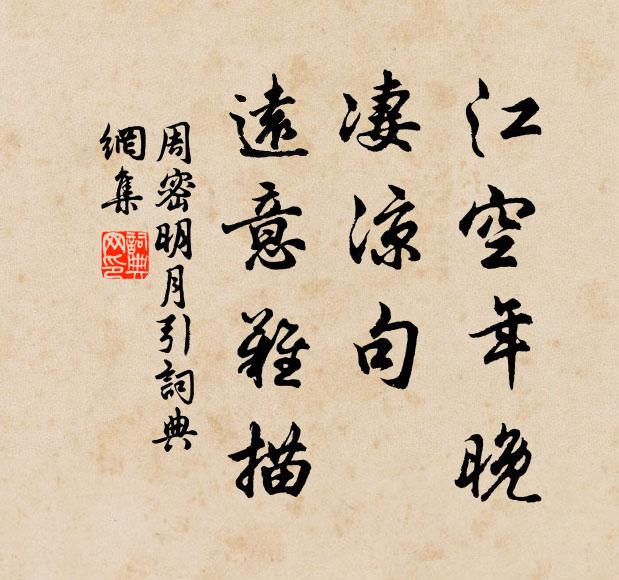 江空年晚
凄涼句
遠意難描
周密明月引詞典
網集
詞典
网印